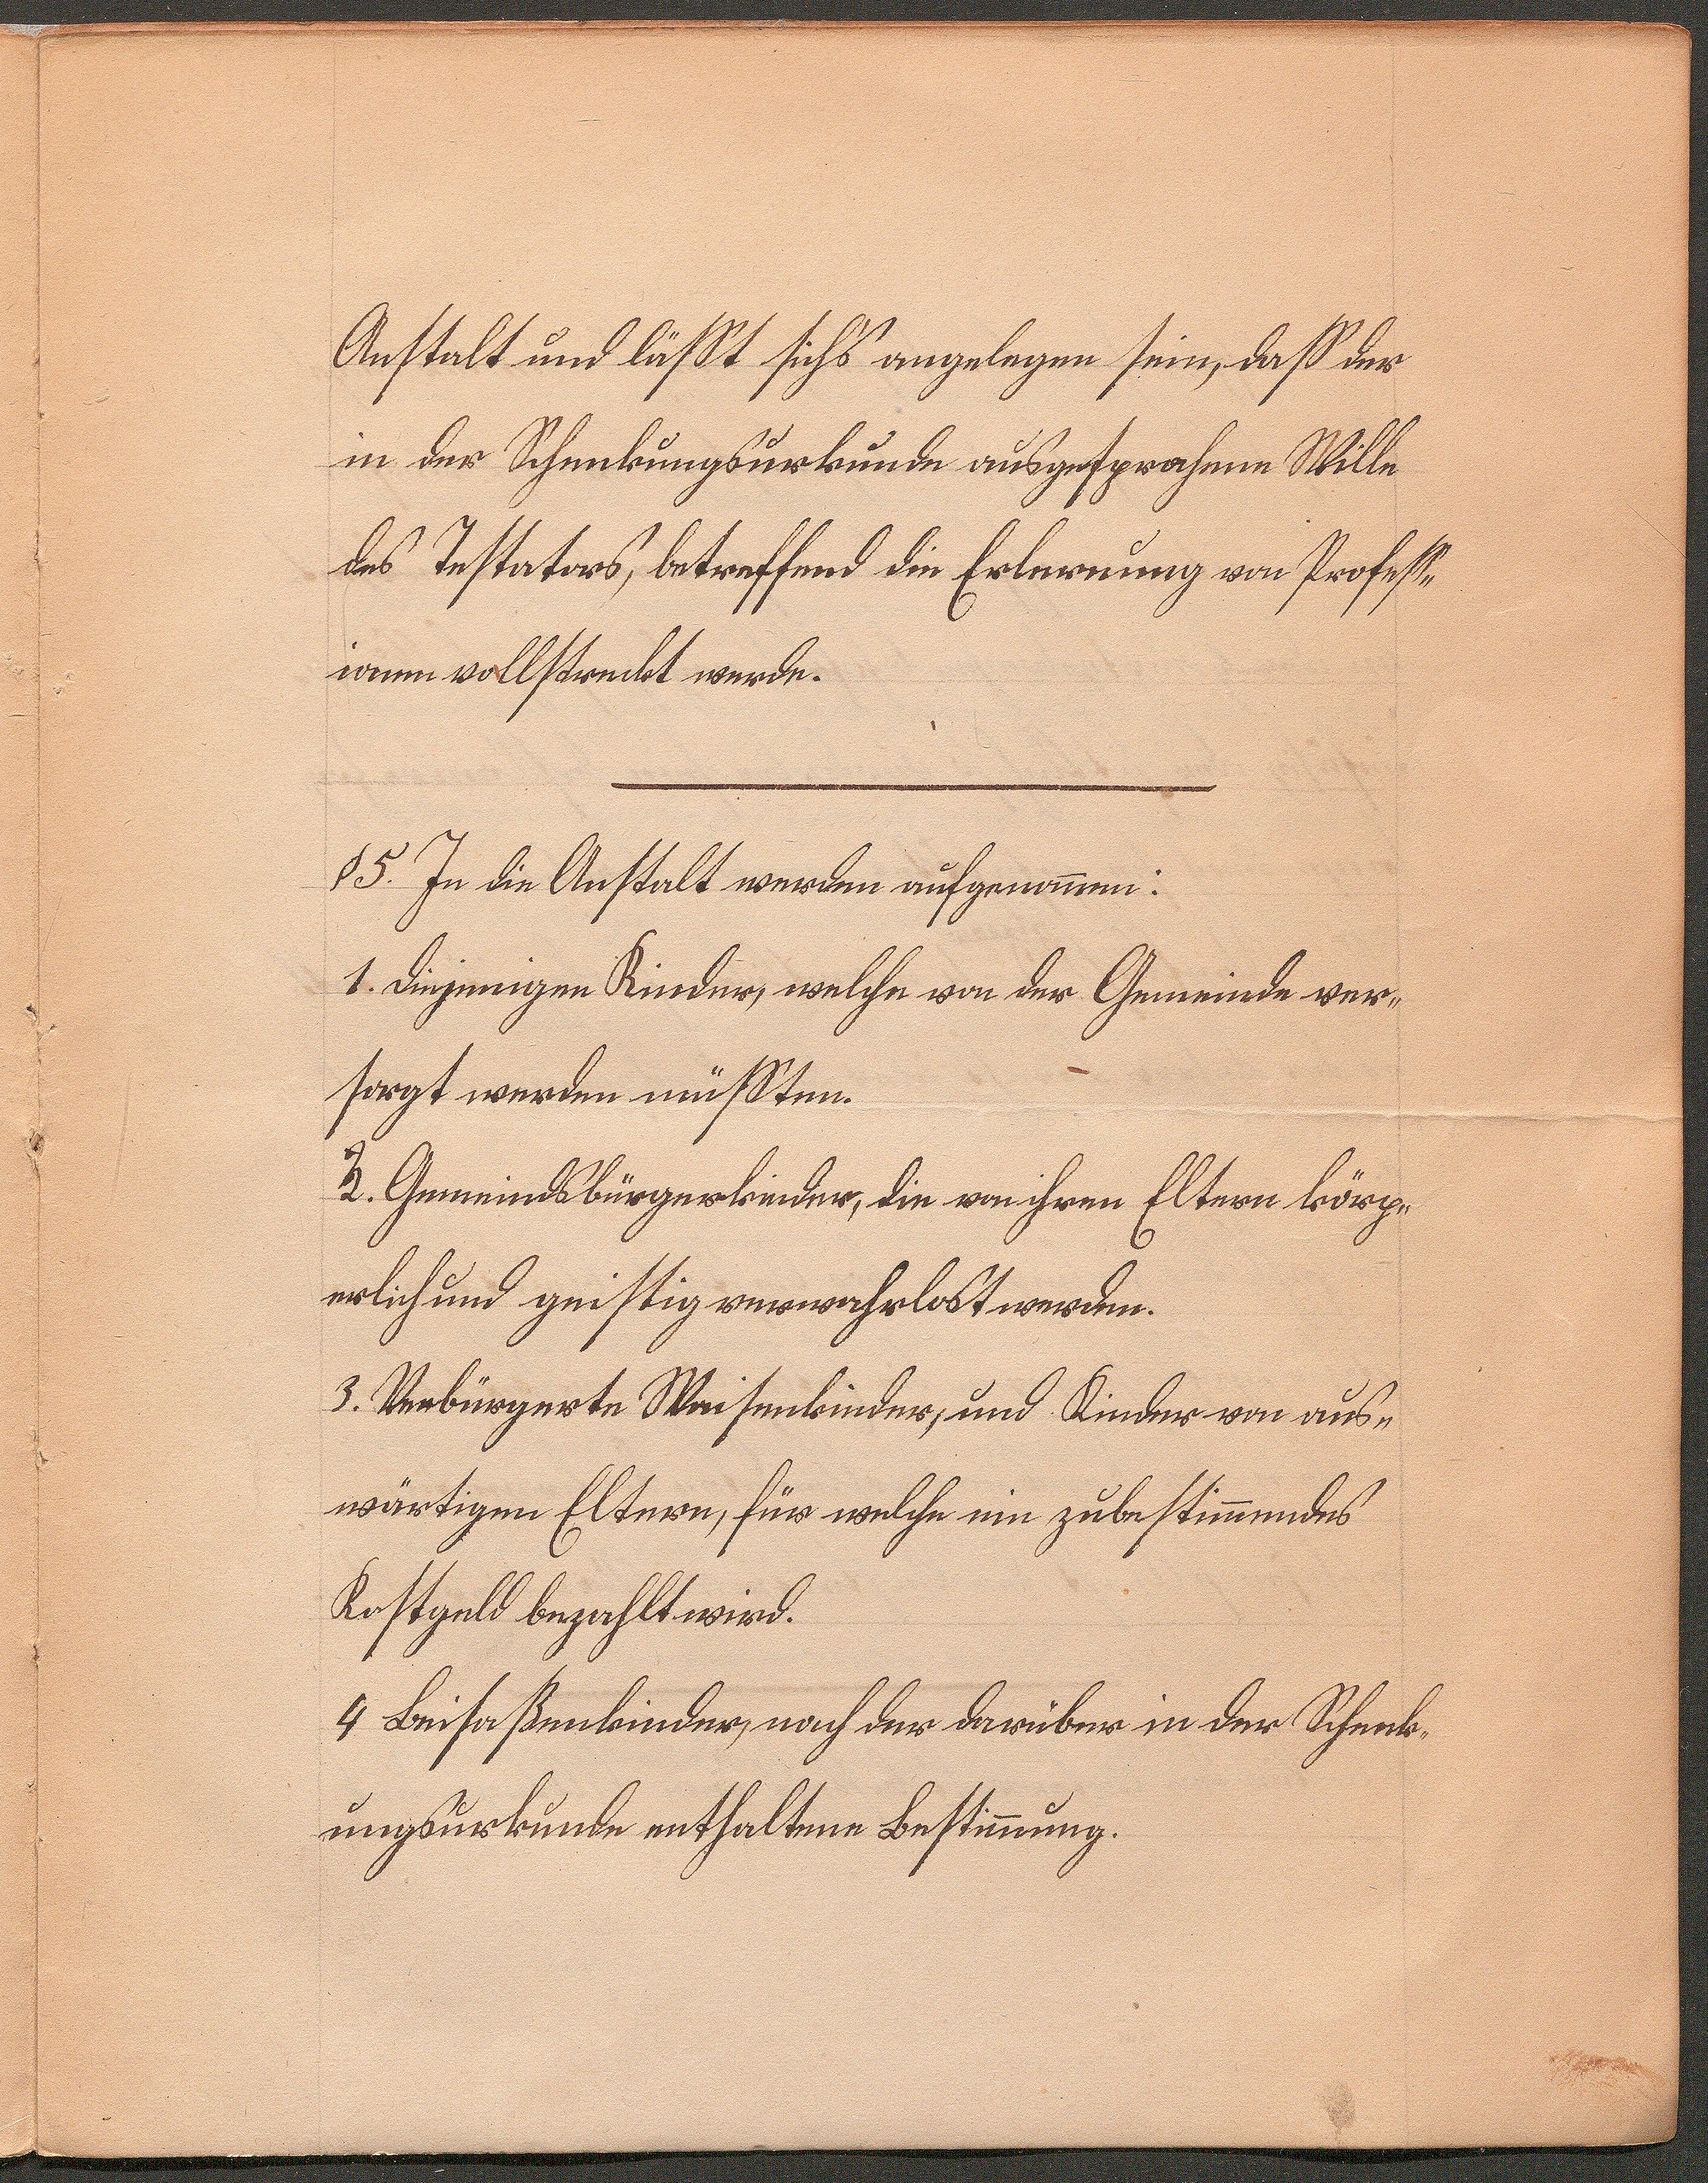 Anstalt und läßt sichs angelegen sein, daß der
in der Schenkungsurkunde ausgesprochene Wille
des Testators, betreffend die Erlernung von Profess„
ionen vollstreckt werde.
§5. In die Anstalt werden aufgenom̅en:
1. diejenigen Kinder, welche von der Gemeinde ver„
sorgt werden müßten.
2. Gemeindsbürgerkinder, die von ihren Eltern körp„
erlich und geistig verwahrlost werden.
3. Verbürgerte Waisenkinder, und Kinder von aus„
wärtigen Eltern, für welche ein zubestim̅endes
Kostgeld bezahlt wird.
4 Beisaßenkinder, nach der darüber in der Schenk„
ungsurkunde enthaltene Bestim̅ung.